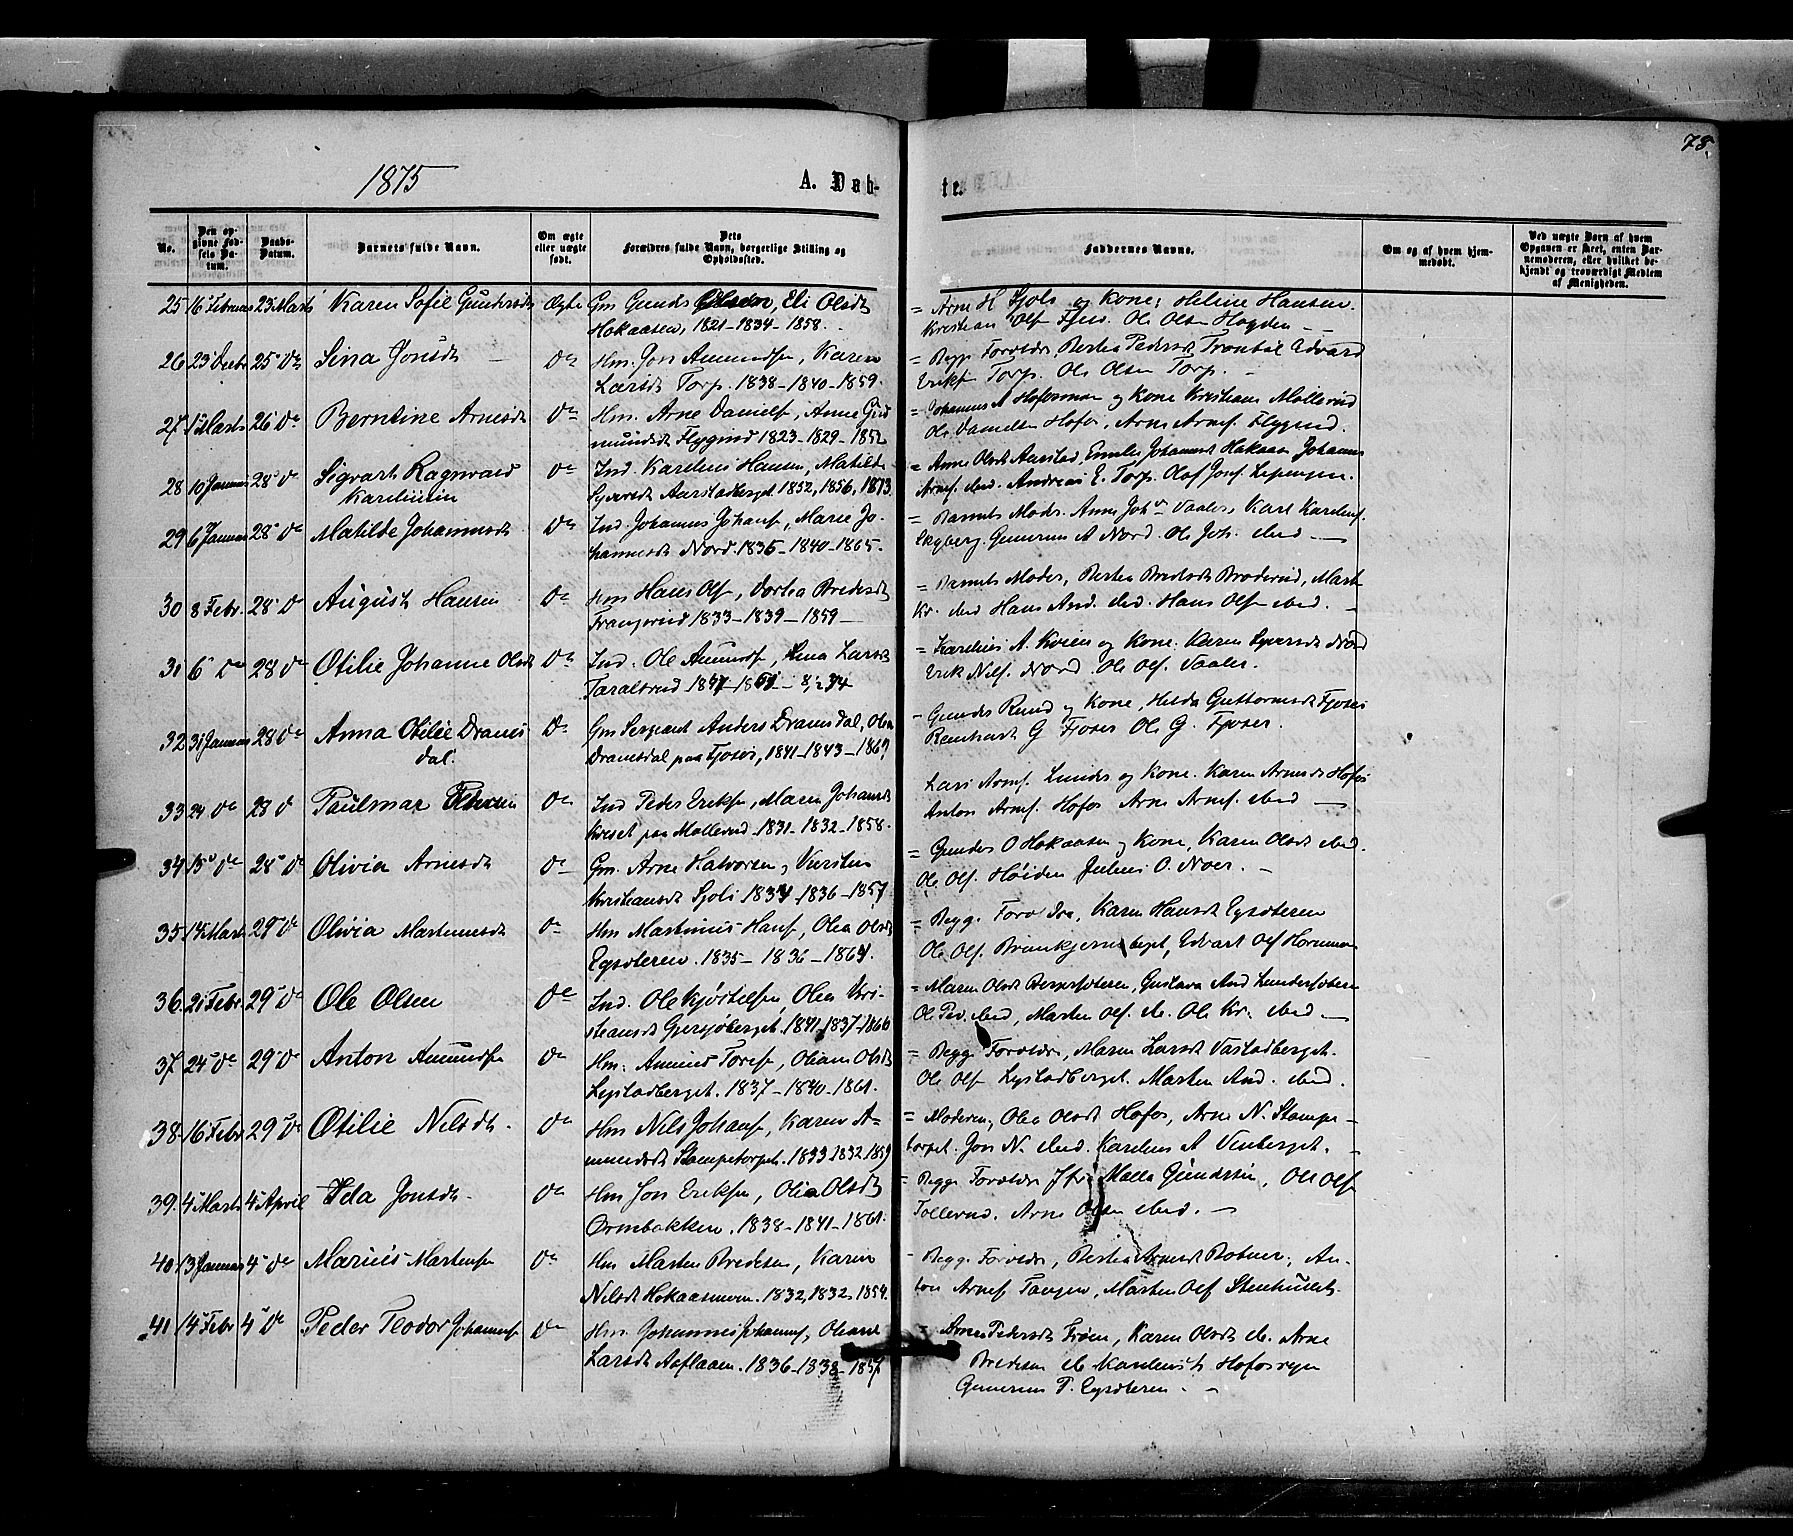 78.
1875
A. Døb-
te.
No.
Den opgivne Fødsels Datum.
Daabs-Datum.
Barnets fulde Navn.
Om ægte eller uægte født.
Dets Forældres fulde Navn, borgerlige Stilling og Opholdssted.
Faddernes Navne.
Om og af hvem hjemmedøbt.
Ved uægte Børn af hvem Opgaven er skeet, enten Barnemoderen, eller hvilket bekjendt og troværdigt Medlem af Menigheden.
25 16 Februar 23 Marts Karen Sofie Gundersdt Ægte Gm Gunder Olsen, Eli Olsdt
Hokaasen, 1821-1834-1858.
= Arne H Sjoli og Kone, Helene Hansen
Kristian Olsf Fjeld. Ole Olsen Hagden
26 23 Decbr 25 Do Lina Jonsdt Do Hm. Jon Amundsf, Karen
Larsdt Torp. 1838-1840-1859.
= Begge Foreldre, Berthe Pedersdt Trondal Edvard
Eriksf Torp. Ole Olsen Torp.
27 1 Marts 26 Do Berntine Arnesdt Do Hm. Arne Danielsf, Anne Gud
mundsdt Flygind 1823-1829-1852
= Johannes A Hofosmoen og Kone Kristiane Mollerud
Ole Danielsen Hofos, Arne Arnesf. Flygind.
28 10 Januar 28 Do Sigvart Ragnvald
Kareliusen
Do Ind. Karelius Hansen, Matilde
Syversdt Aarstadberget 1852, 1856, 1873
= Anne Olsdt Aarstad, Emilie Johannesdt Hokaasen Johannes
Arnesf. ibid. Andreas E. Torp. Olaf Josef Lepengen.
29 6 Januar 28 Do Matilde Johannesdt Do Ind. Johannes Johansf, Marie Jo-
hannesdt Nord. 1835-1840-1865.
= Barnets Moder. Anne Johsdt Vaaler, Karl Karelusf.
Skyberg. Gunerius A Nord. Ole Joh. ibid.
30 8 Febr. 28 D August Hansen Do Hm Hans Olsf, Dortea Bredesdt
Trangsrud 1833-1839-1859
= Barnets Moder, Berthe Bredesdt Braderud, Mart.
Kr. ibid Hans And. ibid. Hans Olsen ibid.
31 6 Do 28 Do Otilie Johanne Olsdt Do Ind. Ole Amundsf, Lina Larsdt
Taralsrud 1847-1851-8/2 74
= Karelius A. Kvien og Kone. Karen Syversdt Nord
Erik Nilsf. Nord. Ole Olsf. Vaaler.
32 31 Januar 28 Do Anna Otilie Drams
dal.
Do Gm Sergeant Anders Dramsdal, Olea
Dramsdal paa Fjoser, 1841-1843-1869
- Gunder Rud og Kone, Hilda Guttormsdt Fjoser
Reinhardt G Fjoser Ole G. Fjoser.
33 24 Do 28 D Paulmar Pedersen Do Ind Peder Eriksf, Maren Johansdt
Kveset paa Mollerud. 1831-1832-1858.
Lars Arnesf. Lunder og Kone. Karen Arnesdt Hofos
Anton Arnesf. Hofos Arne Arnesf. ibid
34 15 Do 28 Do Olivia Arnesdt Do Gm. Arne Halvorsen, Kersten
Kristiansdt Sjoli 1834-1836-1857
= Gunder O Hokaasen og Kone, Karen Olsdt ibid.
Ole Olsf. Høiden Julius O. Noer.
35 14 Marts 29 Do Olivia Martinusdt Do Hm Martinus Hansf, Olea Olsdt
Egsæteren. 1835-1836-1864.
= Begge Foreldre, Karen Hansdt Egsæteren
Ole Olsf. Brænkjernsberget, Edvart Olsf Hornmoen
36. 21 Febr. 29 Do Ole Olsen Do Ind. Ole Kjøstelsen, Olea Kri-
stiansdt Gjersjøberget. 1841-1837-1866
= Maren Olsdt Bergersæteren, Gustava And Lundersæteren
Ole Ped. ibid, Marten Olsf. do. Ole Kr. ibid.
37 24 Do 29 Do Anton Amundsen Do Hm. Amund Toresf, Oliane Olsdt
Lystadberget. 1837-1840-1861.
= Begge Foreldre, Maren Larsdt Vastadberget.
Ole Olsf Lystadberget. Marten And. ibid.
38. 16 Febr 29 Do Otilie Nilsdt. Do Hm Nils Johansf, Karen A-
mundsdt Stampetorpet. 1833 1832 1859
= Moderen, Olea Olsdt Hofos, Arne N. Stampe-
torpet. Jon N. ibid. Karelius A Vinberget.
39. 4 Marts 4 April Ida Jonsdt. Do Hm Jon Eriksen, Olia Olsdt
Ormbakken. 1838-1841-1861.
= Begge Foreldre Jfr. Malla Gundersen, Ole Olsf
Tollerud. Arne Olsen ibid.
40 13 Januar 4 Do Marius Martensen Do Hm Marten Bredesen, Karen
Nilsdt Hokaasmoen. 1832, 1832, 1854.
- Begge Foreldre, Berthe Arnesdt Botner, An-
ton Arnesf Tangen, Marten Olsf Stenhuset.
41 14 Febr 4 Do Peder Teodor Johannesf Do Hm. Johannes Johannesf, Oliane
Larsdt Asflaaen. 1836-1838-1857
= Anne Pedersdt Frøen, Karen Olsdt do. Arne
Bredesen do Karelius L Hofosryen
Gunerius P. Egsæteren.